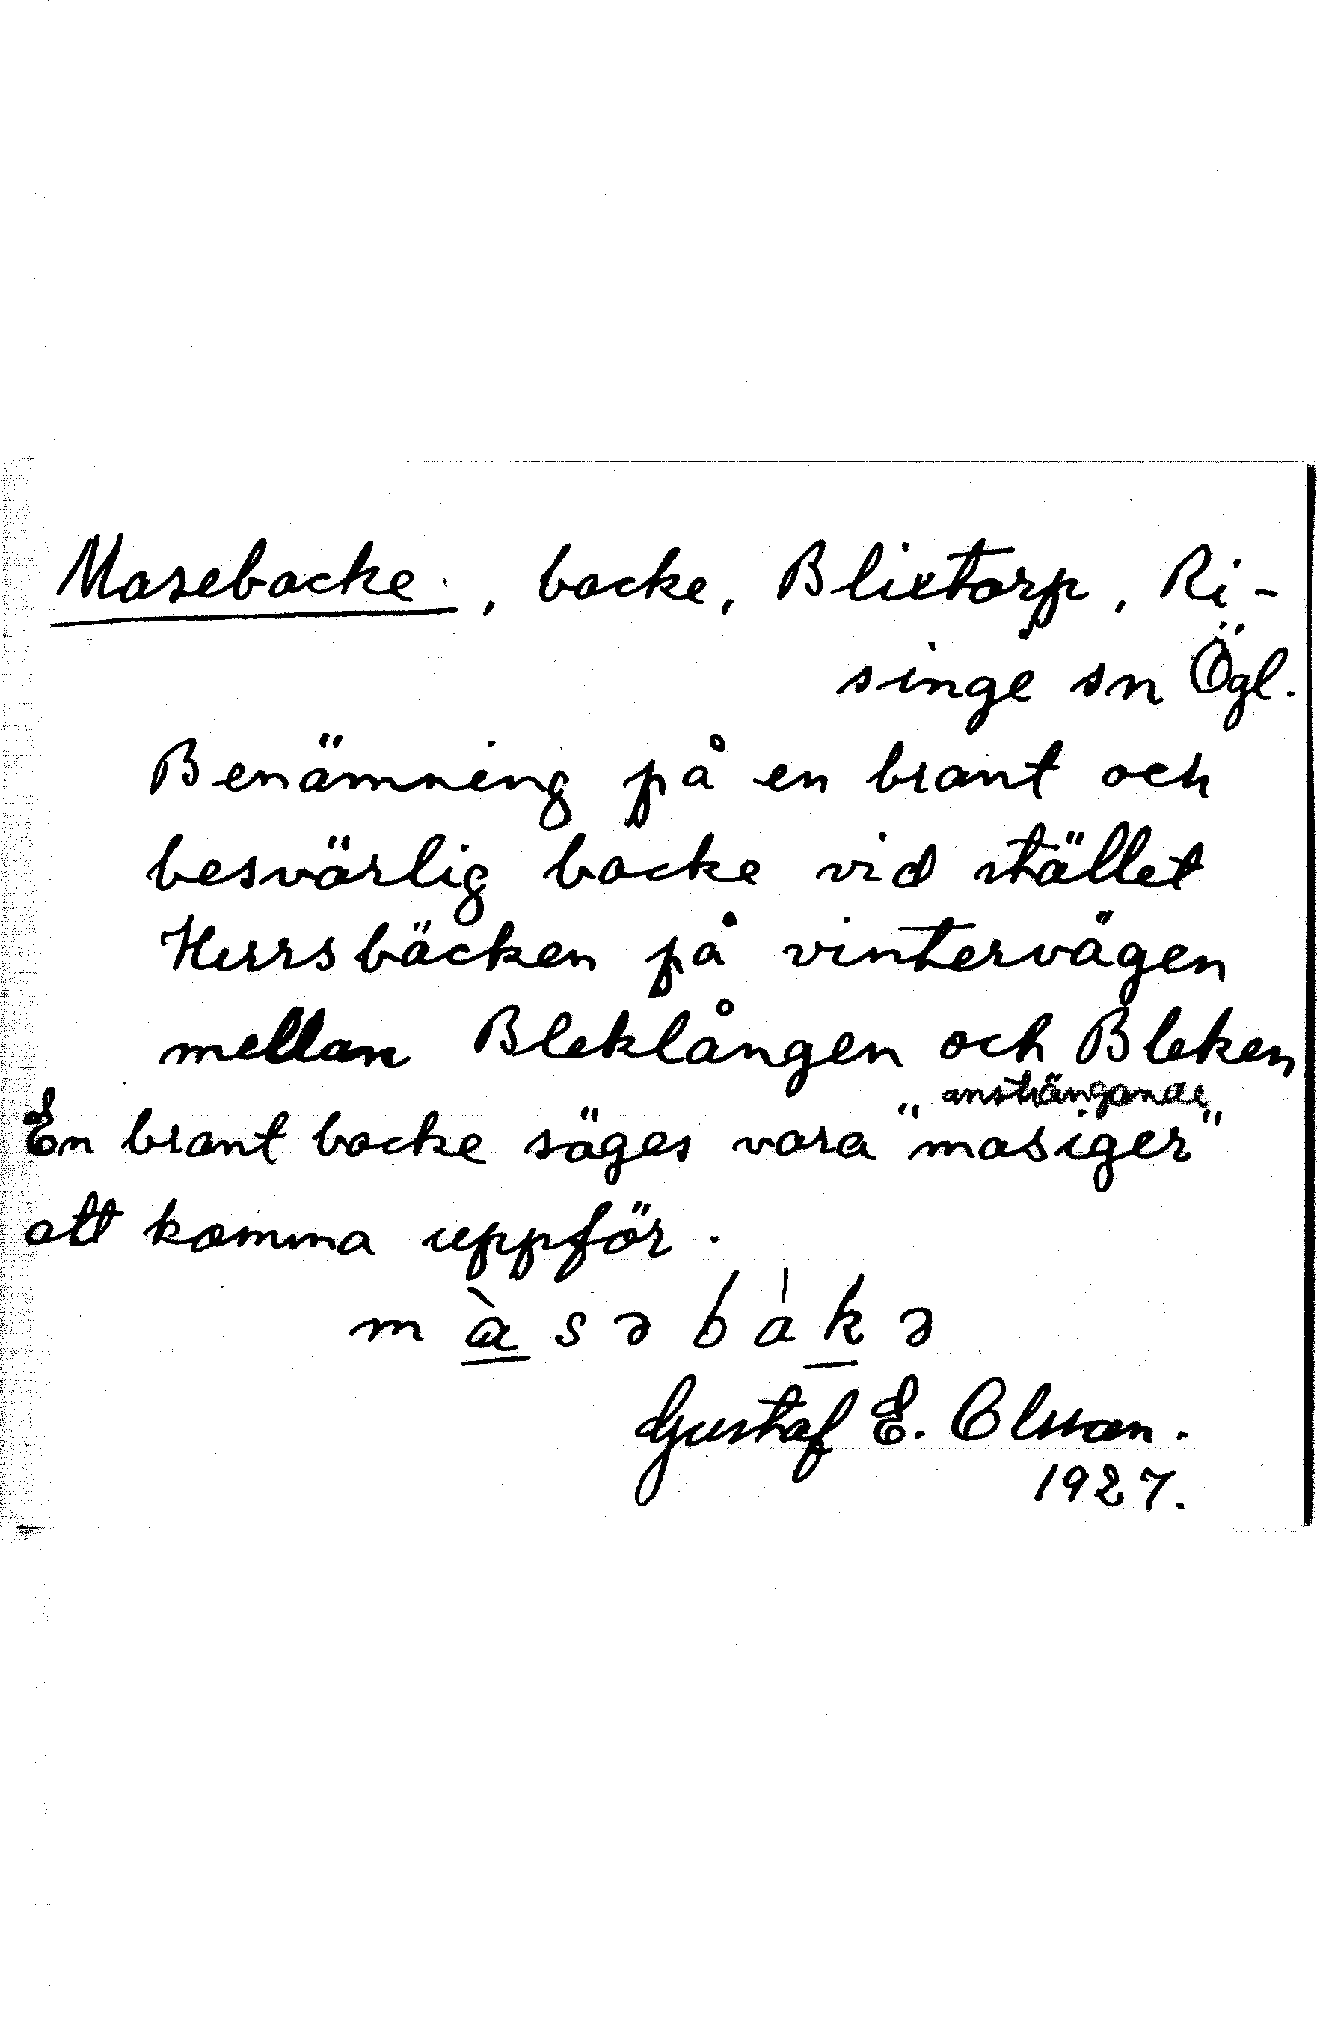 Masebacke, backe, Blixtorp, Ri-
singe sn Ögl.
Benämning på en brant och
besvärlig backe vid stället
Herrsbäcken på vintervägen
mellan Bleklången och Bleken
ansträngande
En brant backe säges vara "masiger"
att komma uppför.
màsəbákə
Gustaf E. Olsson.
1927.